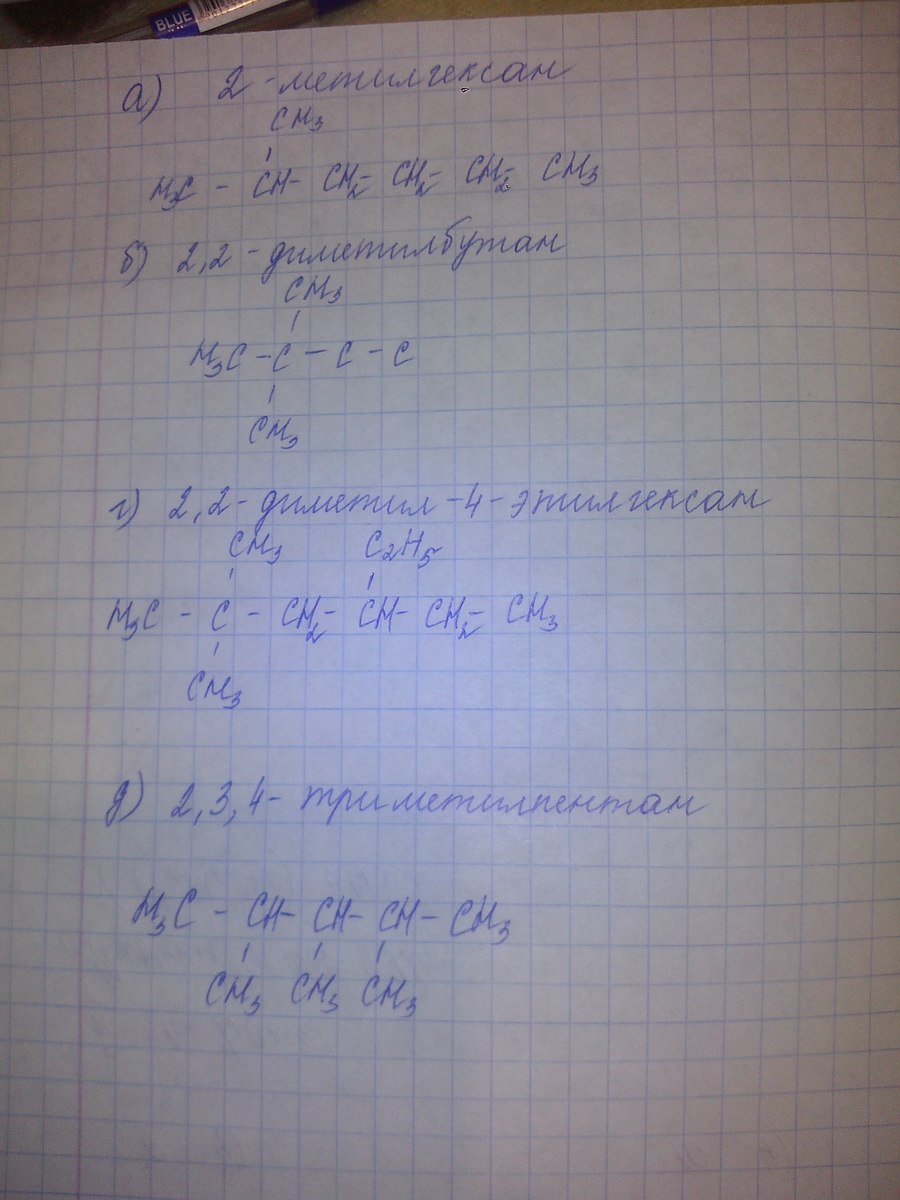 BLUE
а) 2-метилгексан
CH₃
H₃C - CH - CH₂ - CH₂ - CH₂ - CH₃
б) 2,2-диметилбутан
CH₃
H₃C - C - C - C
CH₃
г) 2,2-диметил-4-этилгексан
CH₃ C₂H₅
H₃C - C - CH₂ - CH - CH₂ - CH₃
CH₃
д) 2,3,4-триметилпентан
H₃C - CH - CH - CH - CH₃
CH₃ CH₃ CH₃